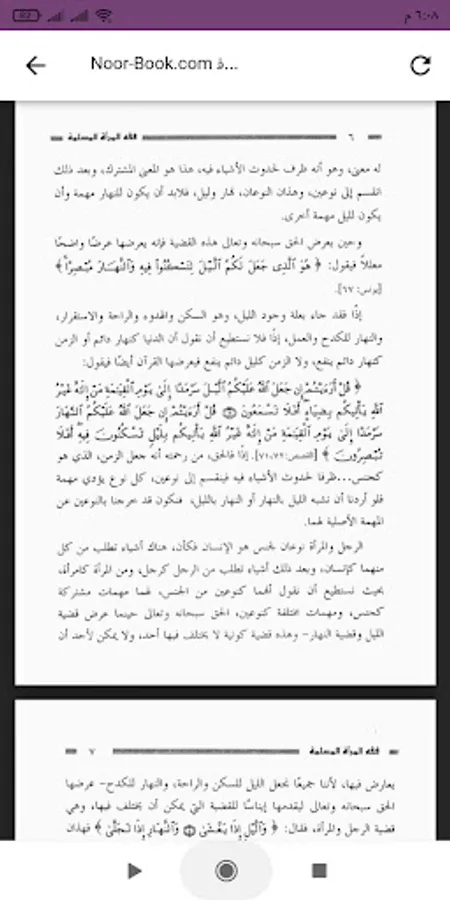 ٦:٠٨ م
82
Noor-Book.com ذ...
٦ فقه المرأة المسلمة
له معنى، وهو أنه ظرف لحدوث الأشياء فيه، هذا هو المعنى المشترك، وبعد ذلك
انقسم إلى نوعين، وهذان النوعان، نهار وليل، فلابد أن يكون للنهار مهمة وأن
يكون لليل مهمة أخرى.
وحين يعرض الحق سبحانه وتعالى هذه القضية فإنه يعرضها عرضًا واضحًا
معللاً فيقول: ﴿ هُوَ الَّذِى جَعَلَ لَكُمُ الَّيْلَ لِتَسْكُنُوا فِيهِ وَالنَّهَارَ مُبْصِرًا ﴾
[يونس: ٦٧].
إذًا فقد جاء بعلة وجود الليل، وهو السكن والهدوء والراحة والاستقرار،
والنهار للكدح والعمل، إذًا فلا نستطيع أن نقول أن الدنيا كنهار دائم أو الزمن
كنهار دائم ينفع، ولا الزمن كليل دائم ينفع فيعرضها القرآن أيضًا فيقول:
﴿ قُلْ أَرَءَيْتُمْ إِن جَعَلَ اللَّهُ عَلَيْكُمُ الَّيْلَ سَرْمَدًا إِلَىٰ يَوْمِ الْقِيَٰمَةِ مَنْ إِلَٰهٌ غَيْرُ
اللَّهِ يَأْتِيكُم بِضِيَاءٍ أَفَلَا تَسْمَعُونَ ۝ قُلْ أَرَءَيْتُمْ إِن جَعَلَ اللَّهُ عَلَيْكُمُ النَّهَارَ
سَرْمَدًا إِلَىٰ يَوْمِ الْقِيَٰمَةِ مَنْ إِلَٰهٌ غَيْرُ اللَّهِ يَأْتِيكُم بِلَيْلٍ تَسْكُنُونَ فِيهِ أَفَلَا
تُبْصِرُونَ ﴾ [القصص:٧١،٧٢]. إذًا فالحق، من رحمته أنه جعل الزمن، الذي هو
كجنس...ظرفا لحدوث الأشياء فيه فينقسم إلى نوعين، كل نوع يؤدي مهمة
فلو أردنا أن نشبه الليل بالنهار أو النهار بالليل، فنكون قد خرجنا بالنوعين عن
المهمة الأصلية لهما.
الرجل والمرأة نوعان لجنس هو الإنسان فكأن، هناك أشياء تطلب من كل
منهما كإنسان، وبعد ذلك أشياء تطلب من الرجل كرجل، ومن المرأة كامرأة،
بحيث نستطيع أن نقول أنهما كنوعين من الجنس، لهما مهمات مشتركة
كجنس، ومهمات مختلفة كنوعين، الحق سبحانه وتعالى حينما عرض قضية
الليل وقضية النهار- وهذه قضية كونية لا يختلف فيها أحد، ولا يمكن لأحد أن
فقه المرأة المسلمة ٧
يعارض فيها، لأننا جميعًا نجعل الليل للسكن والراحة، والنهار للكدح- عرضها
الحق سبحانه وتعالى ليقدمها إيناسًا للقضية التي يمكن أن يختلف فيها، وهي
قضية الرجل والمرأة، فقال: ﴿ وَالَّيْلِ إِذَا يَغْشَىٰ ۝ وَالنَّهَارِ إِذَا تَجَلَّىٰ ﴾ فهذان